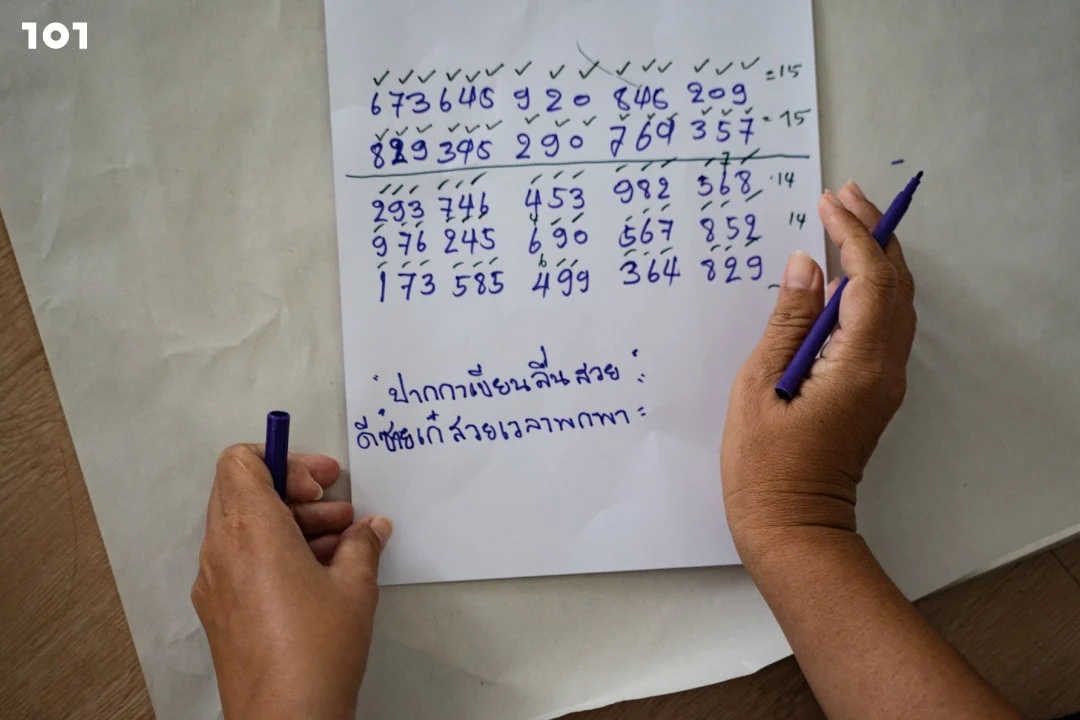 101
✓✓✓✓✓✓✓✓✓✓✓✓✓✓✓ =15
673 646 920 846 209
829 396 290 769 357 - 15
293 746 453 982 568 14
976 245 690 567 852 14
173 585 499 364 829
ปากกาเขียนลื่นสวย
สวยเวลาพกพา